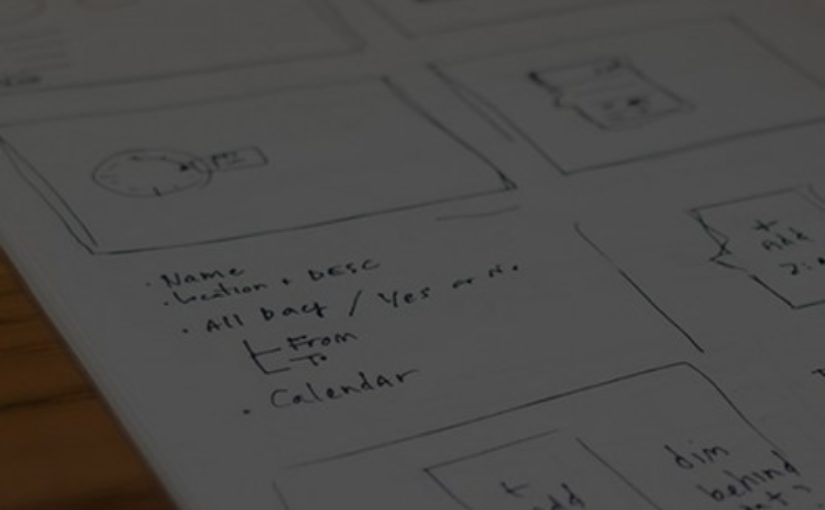 +
Add
• Name
• Location + DESC
• All Day / Yes or No
From
To
• Calendar
+
add
dim
behind